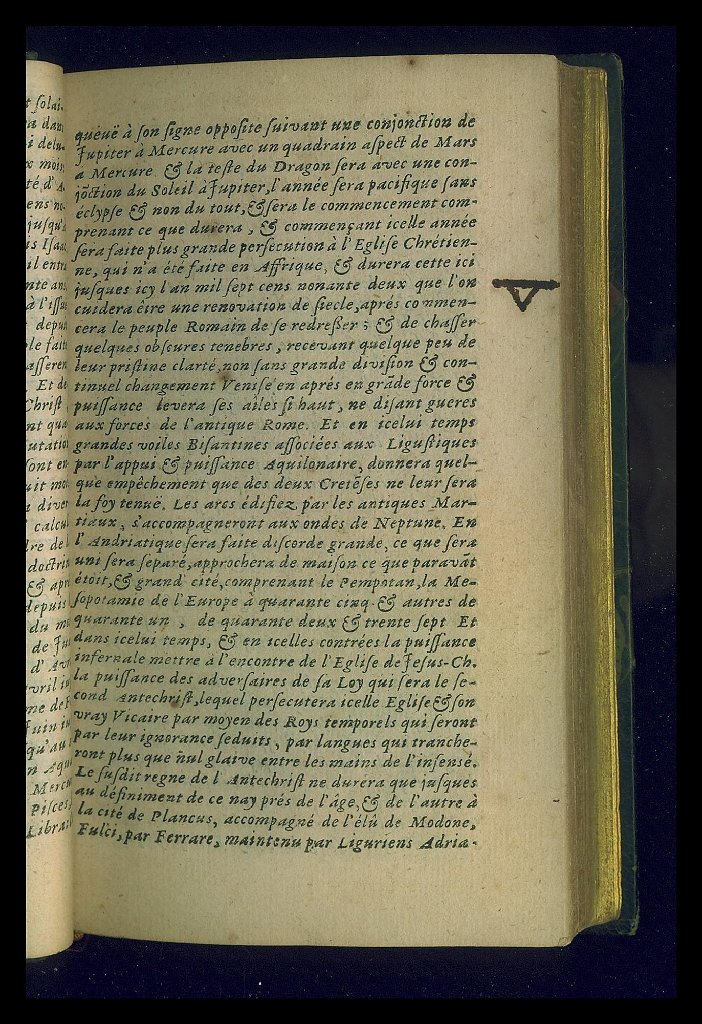 queuë à son signe opposite suivant une conjonction de
Jupiter à Mercure avec un quadrain aspect de Mars
a Mercure & la teste du Dragon sera avec une con-
jõction du Soleil à Jupiter, l'année sera pacifique sans
éclypse & non du tout, & sera le commencement com-
prenant ce que durera, & commençant icelle année
sera faite plus grande persecution à l'Eglise Chrétien-
ne, qui n'a été faite en Affrique, & durera cette ici
jusques icy l'an mil sept cens nonante deux que l'on
cuidera être une renovation de siecle, aprés commen-
cera le peuple Romain de se redresser; & de chasser
quelques obscures tenebres, recevant quelque peu de
leur pristine clarté, non sans grande division & con-
tinuel changement Venise en aprés en grãde force &
puissance levera ses ailes si haut, ne disant gueres
aux forces de l'antique Rome. Et en icelui temps
grandes voiles Bisantines associées aux Ligustiques
par l'appui & puissance Aquilonaire, donnera quel-
que empêchement que des deux Cretẽses ne leur sera
la foy tenuë. Les arcs édifiez par les antiques Mar-
tiaux, s'accompagneront aux ondes de Neptune. En
l'Andriatique sera faite discorde grande, ce que sera
uni sera separé, approchera de maison ce que paravãt
étoit, & grand cité, comprenant le Pempotan, la Me-
sopotamie de l'Europe à quarante cinq & autres de
quarante un, de quarante deux & trente sept Et
dans icelui temps, & en icelles contrées la puissance
infernale mettre à l'encontre de l'Eglise de Jesus-Ch.
la puissance des adversaires de sa Loy qui sera le se-
cond Antechrist, lequel persecutera icelle Eglise & son
vray Vicaire par moyen des Roys temporels qui seront
par leur ignorance seduits, par langues qui tranche-
ront plus que nul glaive entre les mains de l'insensé.
Le susdit regne de l'Antechrist ne durera que jusques
au définiment de ce nay prés de l'âge, & de l'autre à
la cité de Plancus, accompagné de l'élû de Modone,
Fulci, par Ferrare, maintenu par Liguriens Adria-